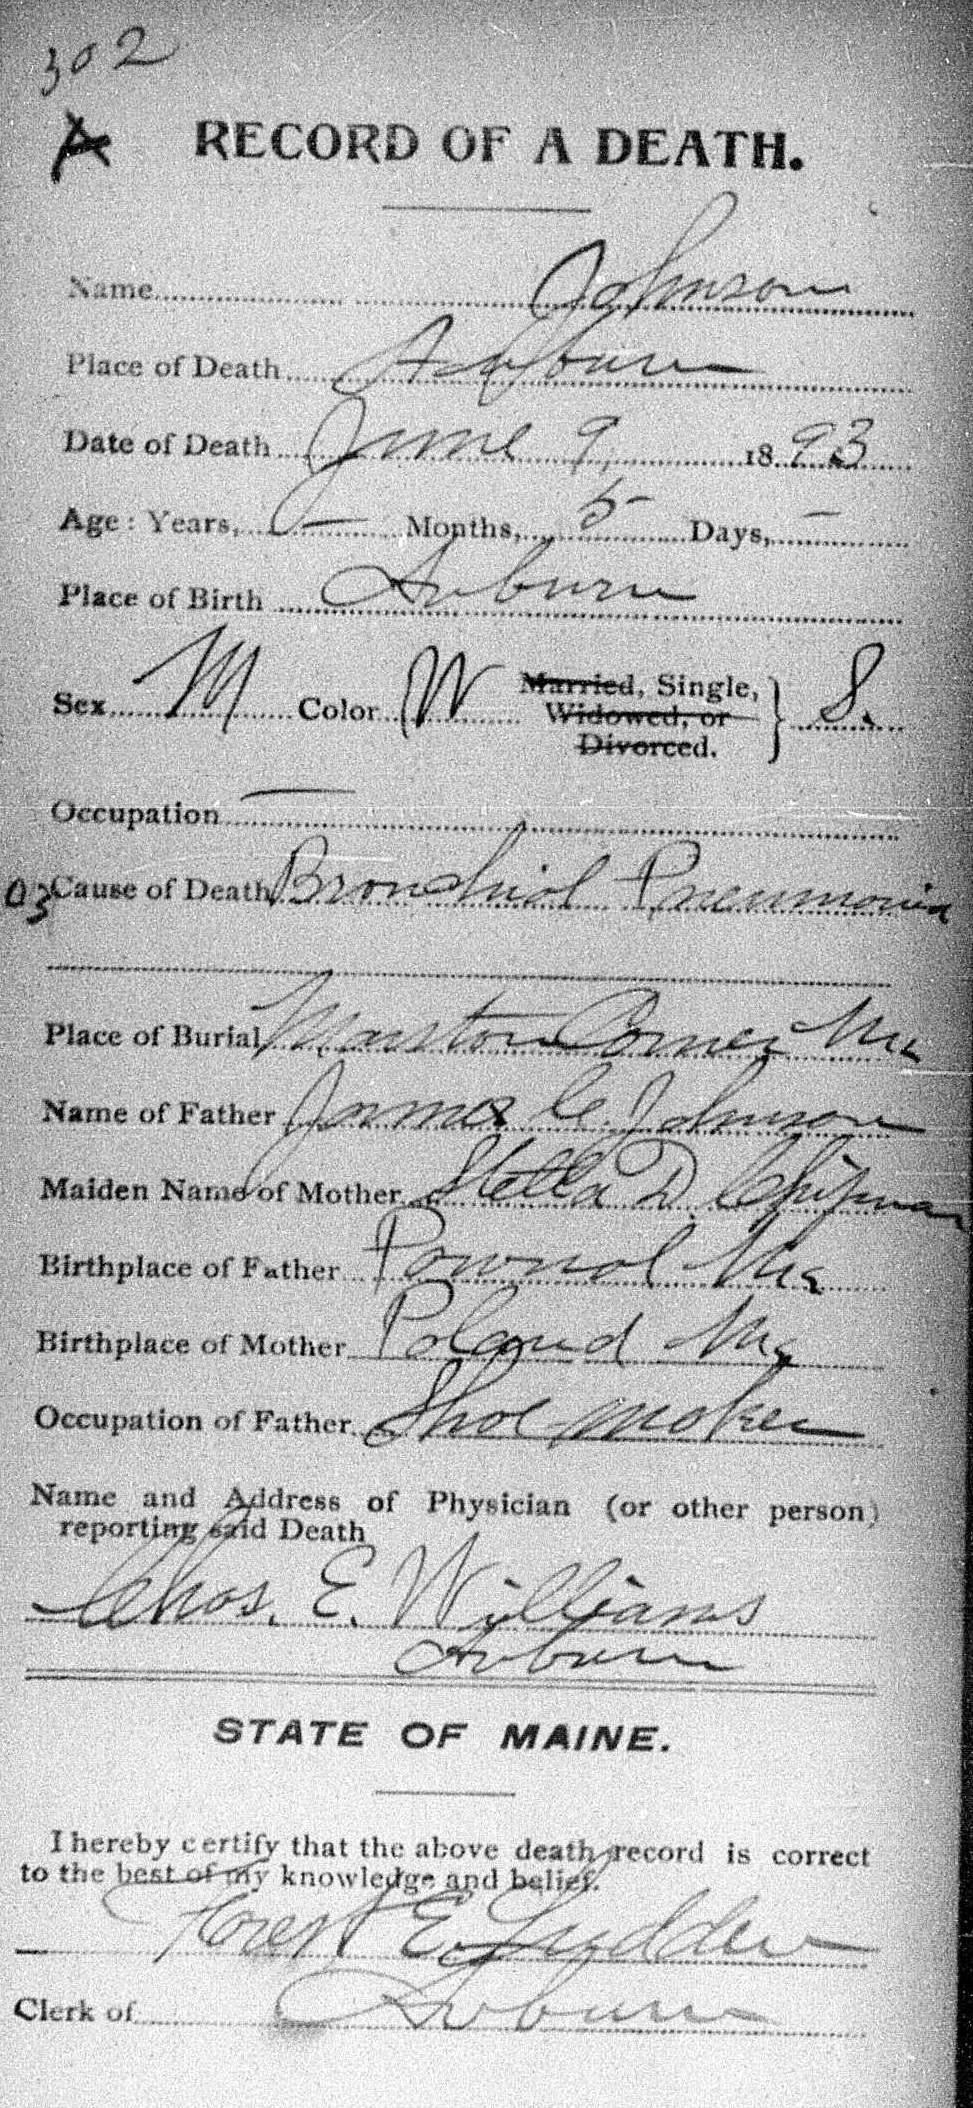 302
A RECORD OF A DEATH.
Name Johnson
Place of Death Auburn
Date of Death June 9, 1893
Age: Years, — Months, 5 Days, —
Place of Birth Auburn
Sex M Color W Married, Single, Widowed, or Divorced. } S.
Occupation —
03 Cause of Death Bronchial Pneumonia
Place of Burial Marston Corner Me
Name of Father James C. Johnson
Maiden Name of Mother Stella D. Chipman
Birthplace of Father Pownal Me
Birthplace of Mother Poland Me
Occupation of Father Shoe maker
Name and Address of Physician (or other person)
reporting said Death
Chas. E. Williams
Auburn
STATE OF MAINE.
I hereby certify that the above death record is correct
to the best of my knowledge and belief.
Forest E. Ludden
Clerk of Auburn